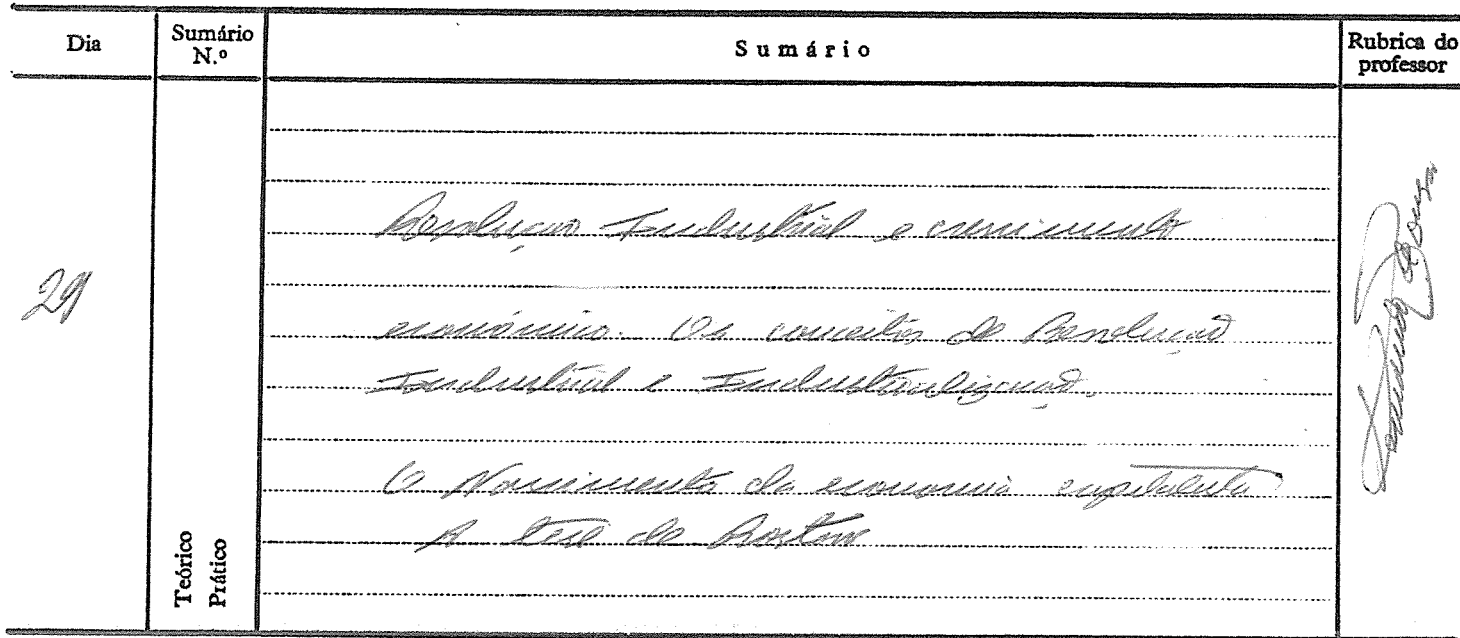 Dia
Sumário N.º
Sumário
Rubrica do professor
29
Revolução Industrial e crescimento
económico. Os conceitos de Revolução
Industrial e Industrialização.
O Nascimento da economia capitalista
A tese de Rostow
Teórico
Prático